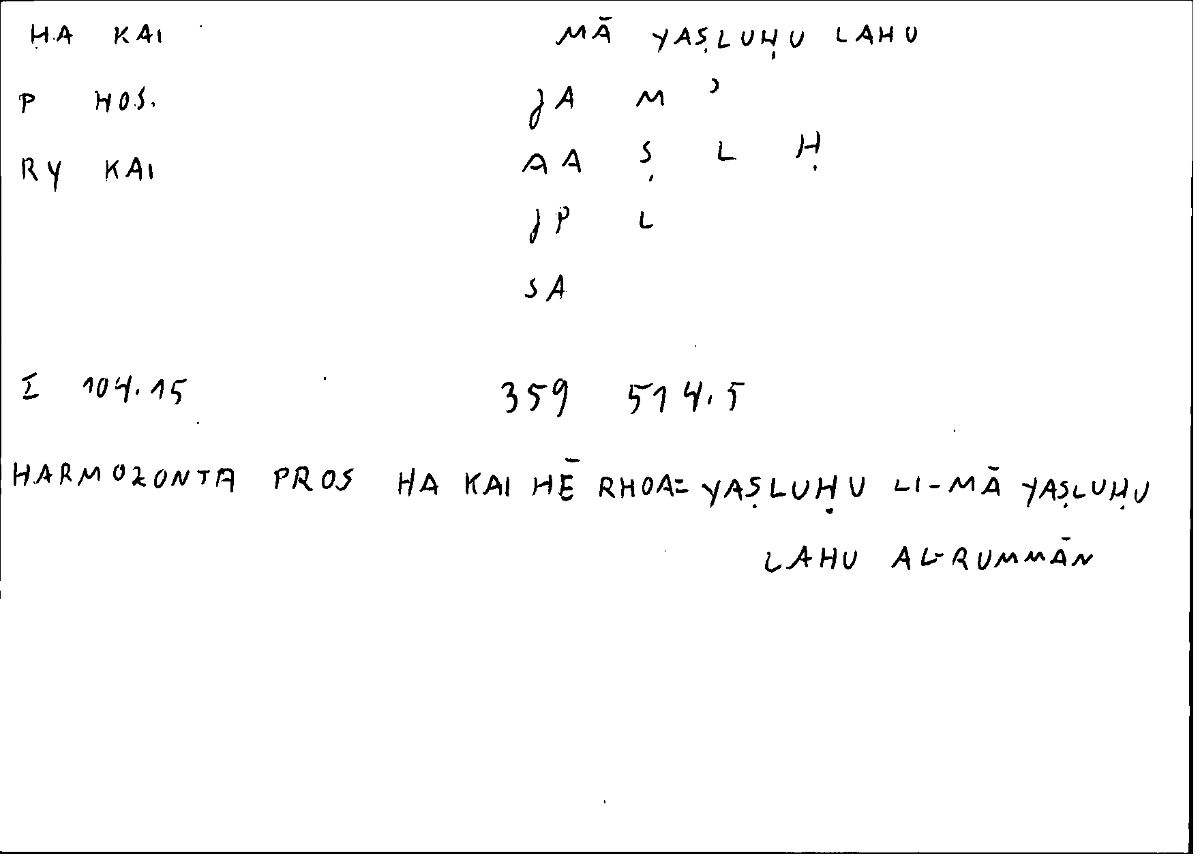 HA KAI MĀ YAṢLUḤU LAHU
P HOS. JA M ʾ
RY KAI AA Ṣ L Ḥ
JP L
SA
I 104.15 359 514.5
HARMOZONTA PROS HA KAI HĒ RHOA= YAṢLUḤU LI-MĀ YAṢLUḤU
LAHU AL-RUMMĀN